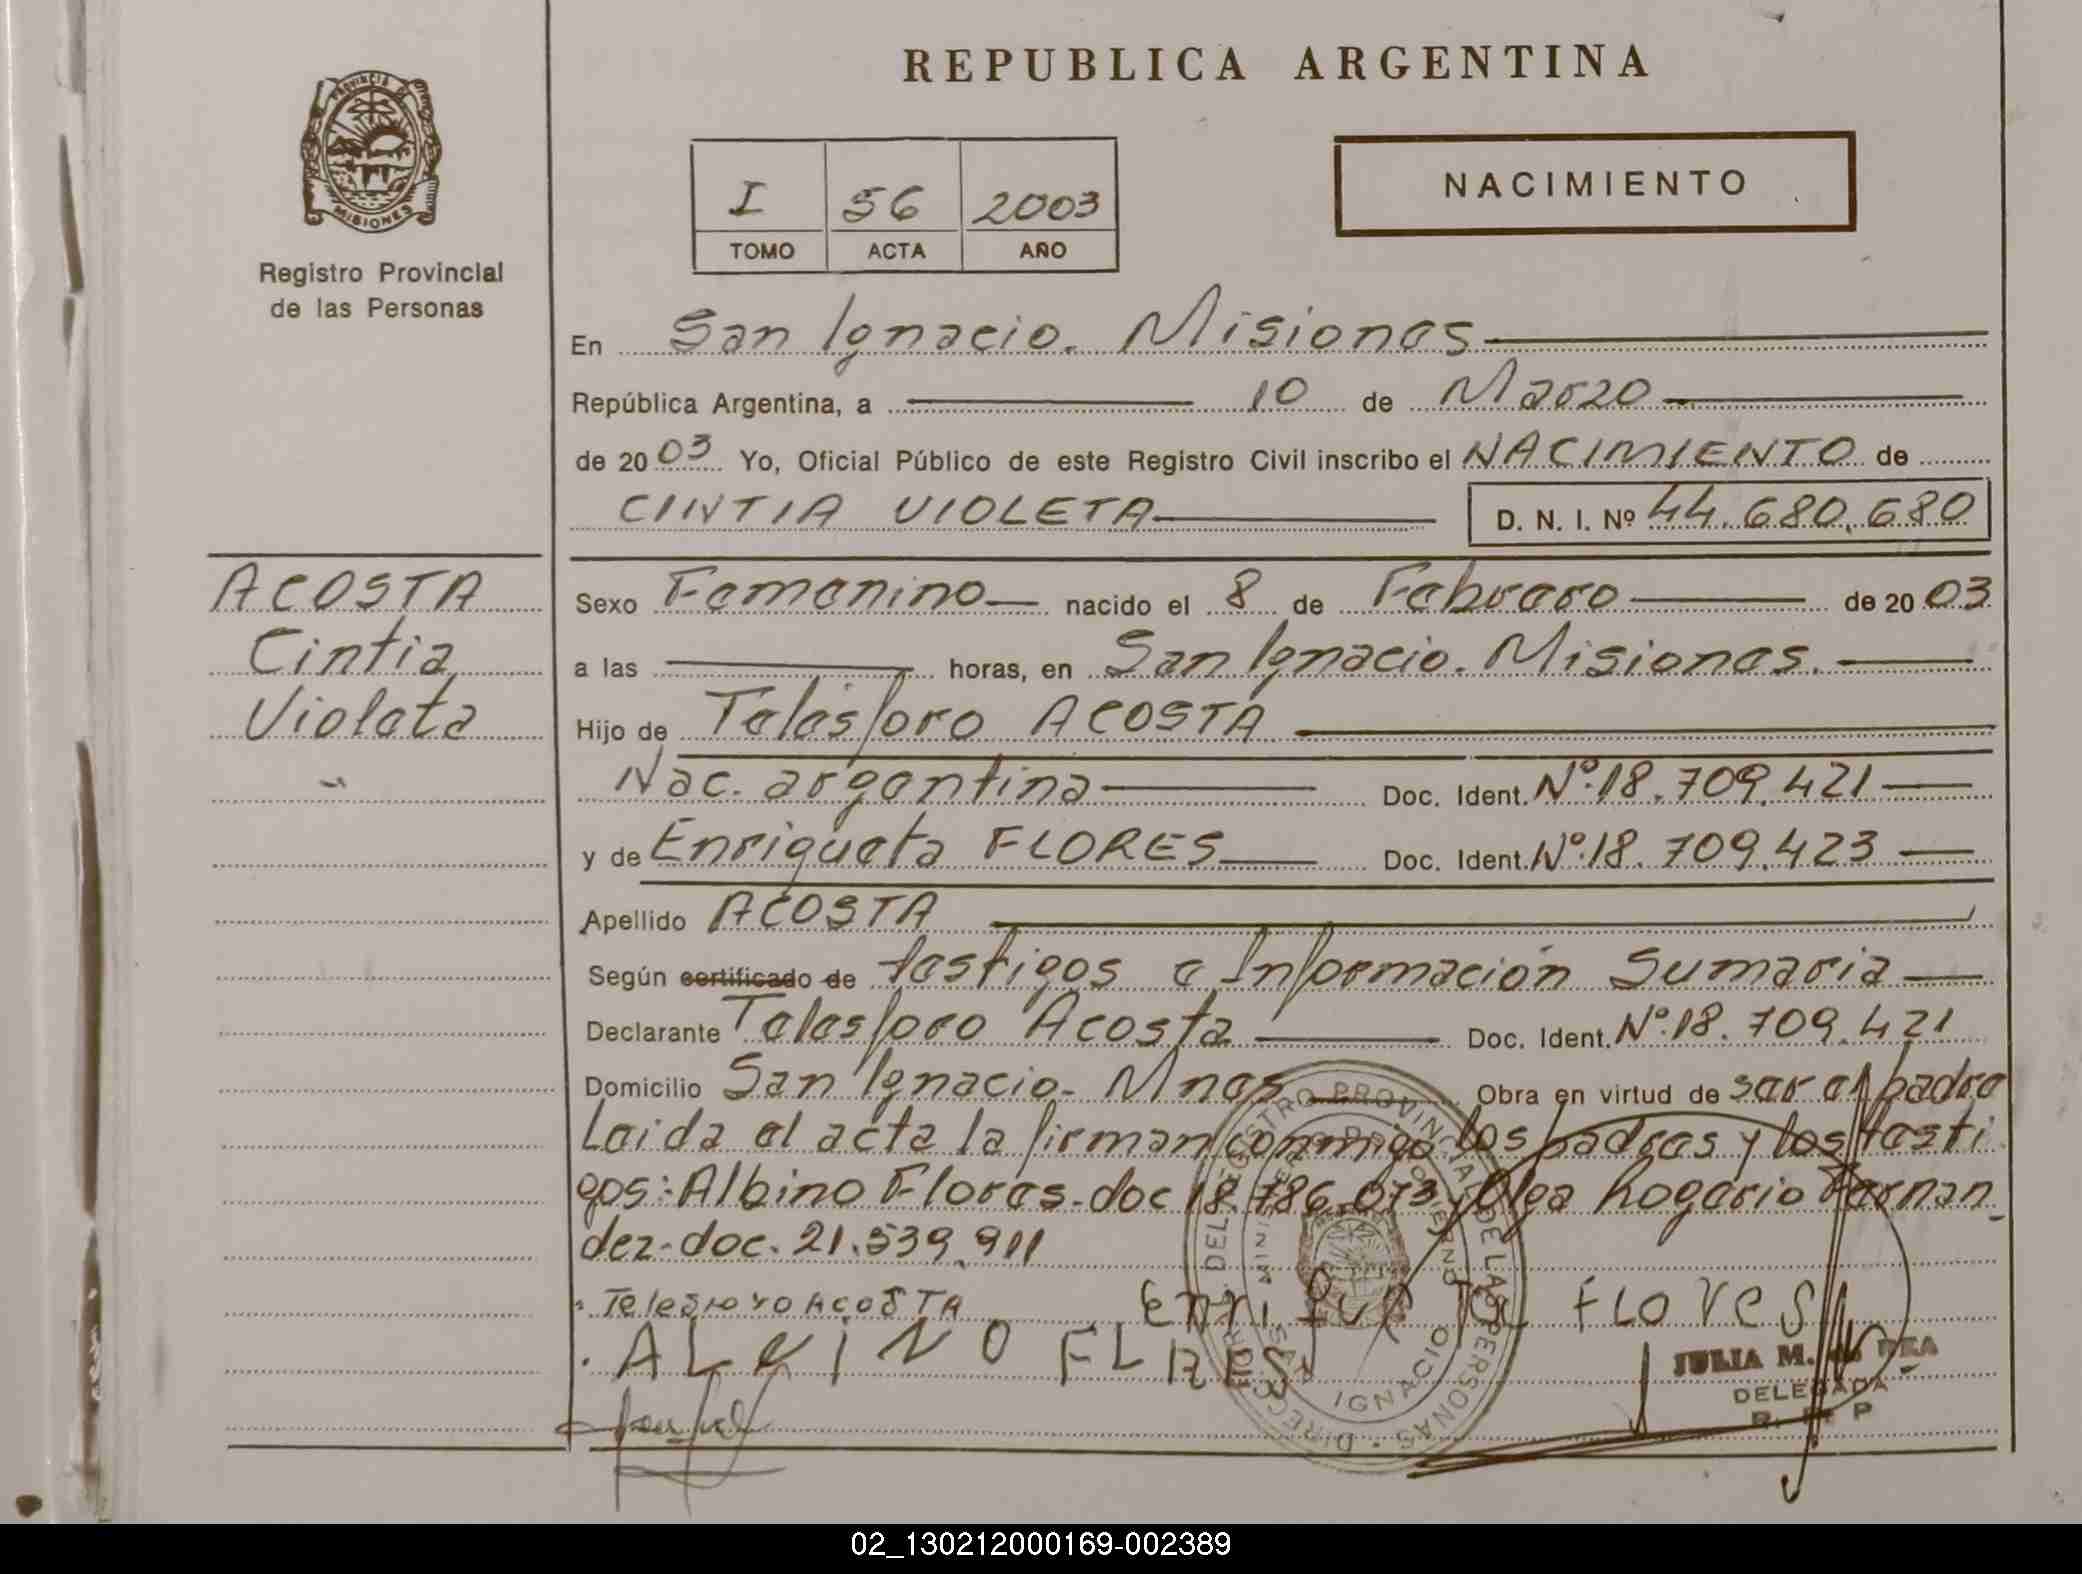 REPUBLICA ARGENTINA
PROVINCIA DE
MISIONES
Registro Provincial
de las Personas
I 56 2003
TOMO ACTA AÑO
NACIMIENTO
En San Ignacio. Misiones
República Argentina, a 10 de Marzo
de 2003 Yo, Oficial Público de este Registro Civil inscribo el NACIMIENTO de
CINTIA VIOLETA D. N. I. Nº 44.680.680
ACOSTA
Cintia
Violeta
Sexo Femenino nacido el 8 de Febrero de 2003
a las horas, en San Ignacio. Misiones.
Hijo de Telésforo ACOSTA
Nac. argentina Doc. Ident. Nº.18.709.421
y de Enriqueta FLORES Doc. Ident. Nº.18.709.423
Apellido ACOSTA
Según certificado de testigos e Información Sumaria
Declarante Telesforo Acosta Doc. Ident. Nº.18.709.421
Domicilio San Ignacio- Mnes Obra en virtud de ser el padre
Leida el acta la firman conmigo los padres y los testi
gos: Albino Flores. doc 18.786.073 y Olga Rogerio Fernan_
dez- doc. 21.539.911
Telesforo ACOSTA Enriqueta Flores
ALVINO FLRES
JULIA M.
DELEGADA
R. P. P
DIRECTOR. DEL REGISTRO PROVINCIAL DE LAS PERSONAS
IGNACIO
02_130212000169-002389